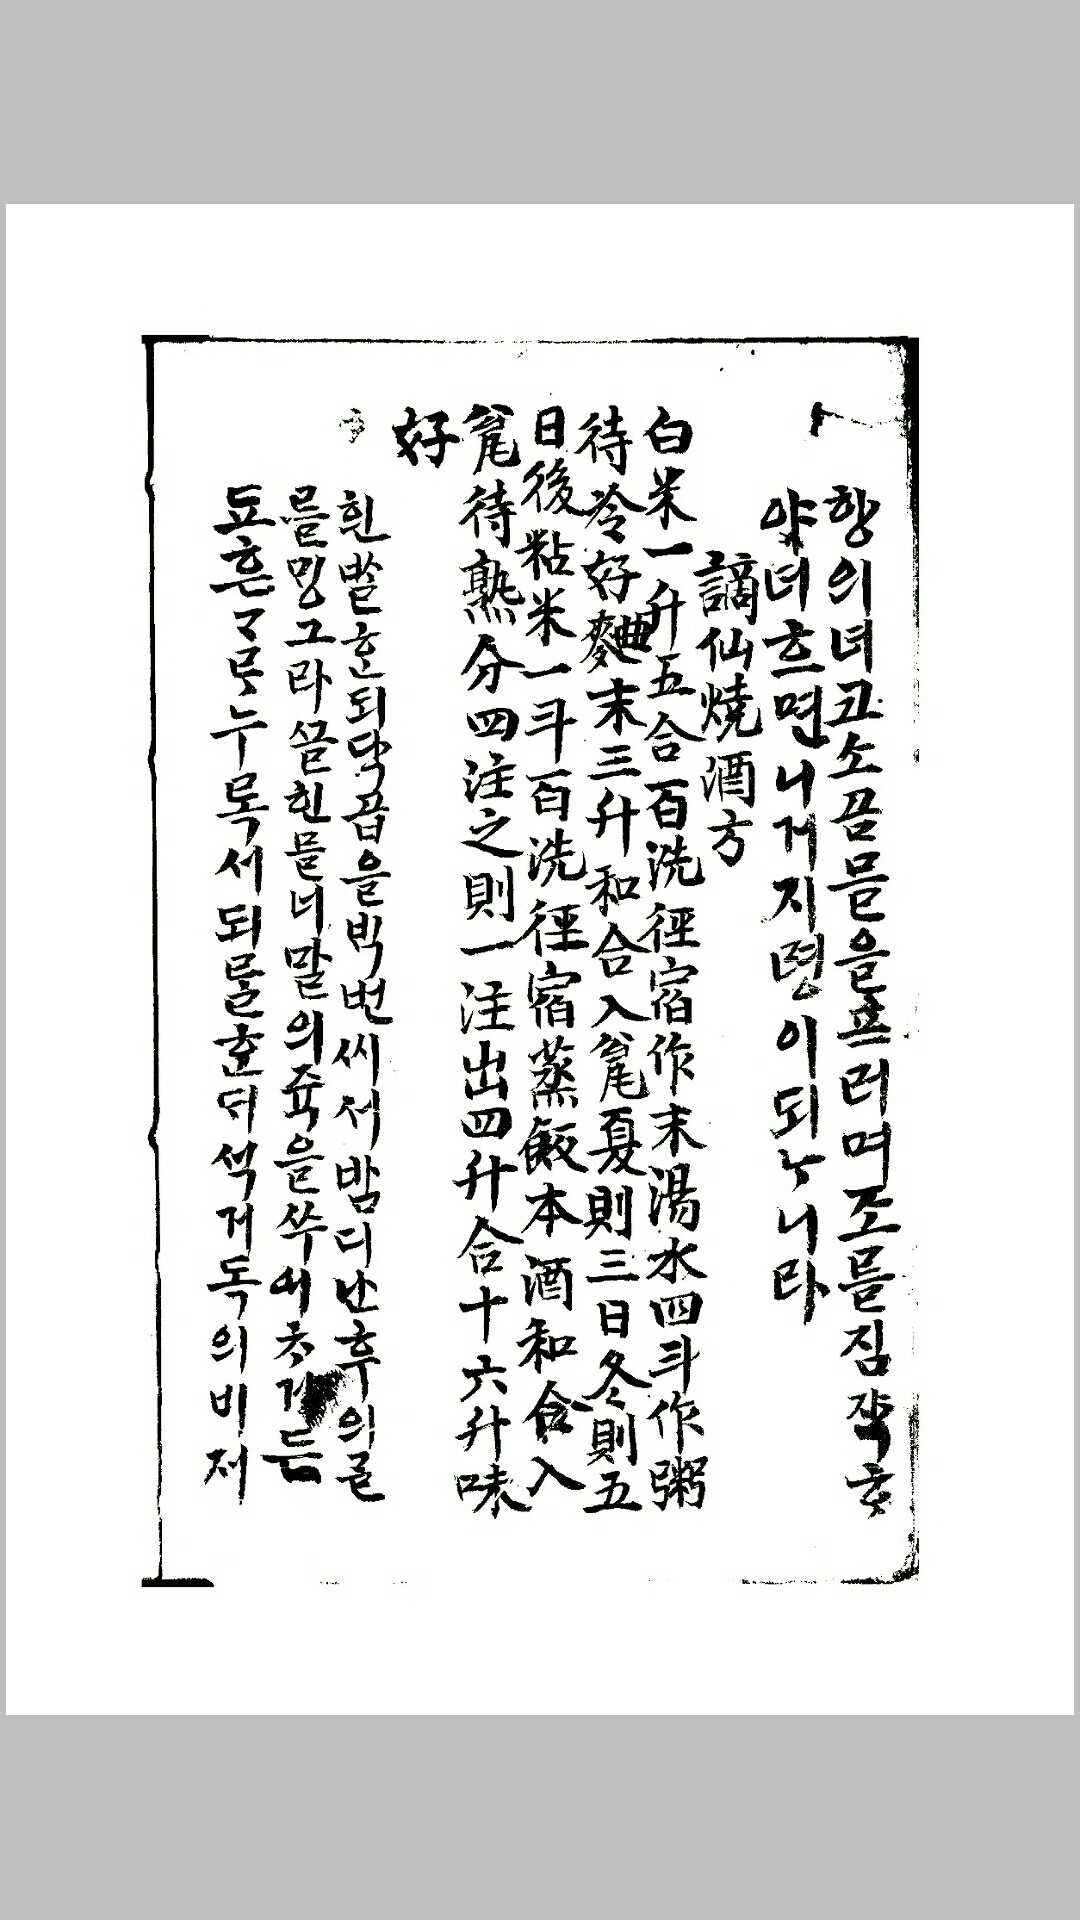 항의녀코소곰믈을프러며조믈짐쟉ᄒᆞ
야녀흐면니거지령이되ᄂᆞ니라
謫仙燒酒方
白米一升五合百洗徑宿作末湯水四斗作粥
待冷好麯末三升和合入瓮夏則三日冬則五
日後粘米一斗百洗徑宿蒸飯本酒和合入
瓮待熟分四注之則一注出四升合十六升味
好
흰ᄡᆞᆯᄒᆞᆫ되닷곱을ᄇᆡᆨ번씨서밤디난후의ᄀᆞᆯ
를ᄆᆡᆼ그라ᄭᅳᆯ힌믈너말의쥭을쑤어ᄎᆞ거든
됴흔ᄀᆞᄅᆞ누록서되ᄅᆞᆯᄒᆞᆫᄃᆡ섯거독의비저